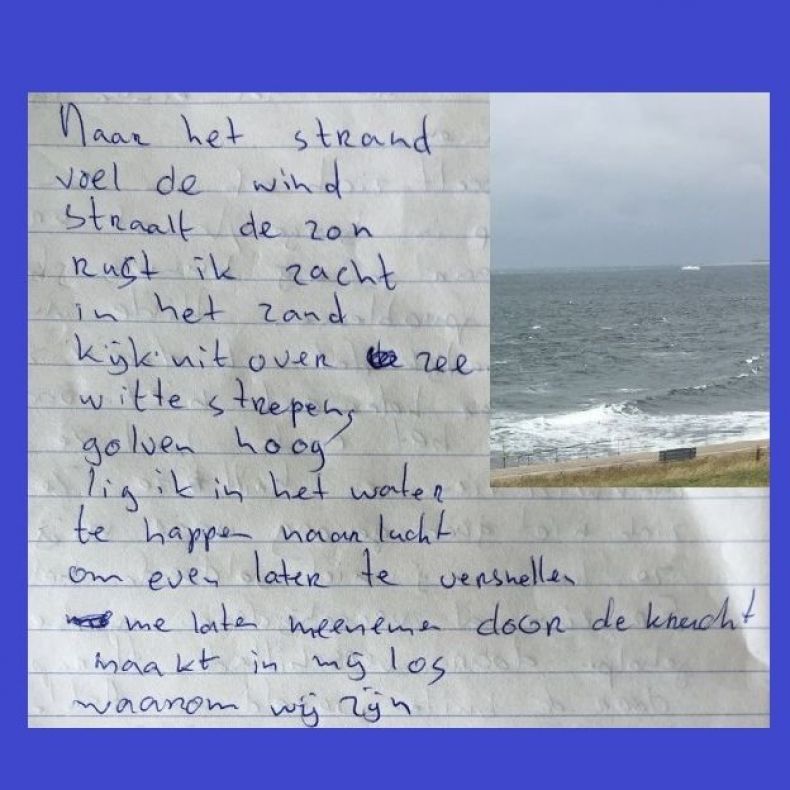 Naar het strand
voel de wind
straalt de zon
rust ik zacht
in het zand
kijk uit over zee
witte strepen,
golven hoog
lig ik in het water
te happen naar lucht
om even later te versnellen
me laten meenemen door de kracht
maakt in mij los
waarom wij zijn